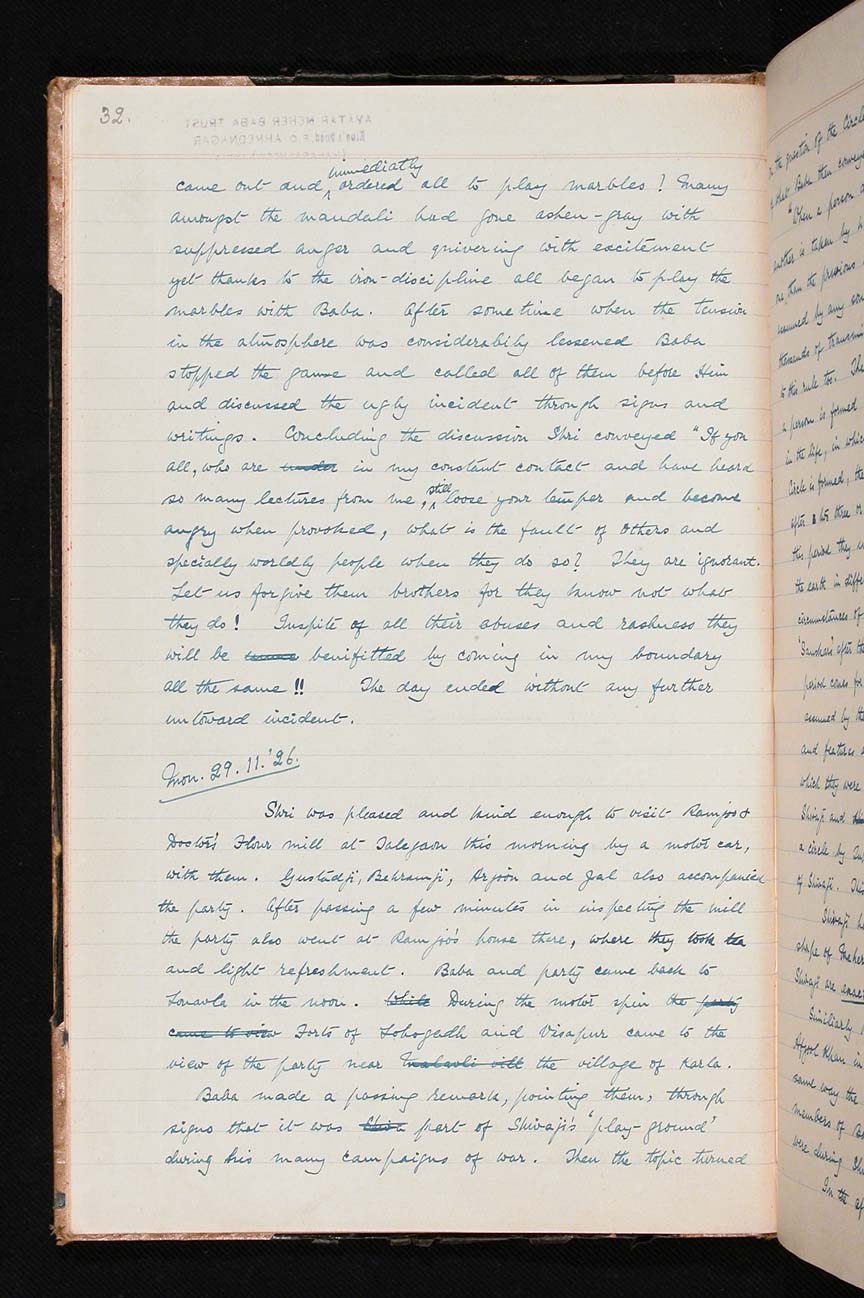 32.
AVATAR MEHER BABA TRUST
AHMEDNAGAR
immediatly
came out and ordered all to play marbles! Many
amongst the mandali had gone ashen-gray with
suppressed anger and quivering with excitement
yet thanks to the iron-discipline all began to play the
marbles with Baba. After some time when the tension
in the atmosphere was considerably lessened Baba
stopped the game and called all of them before Him
and discussed the ugly incident through signs and
writings. Concluding the discussion Shri conveyed "If you
all, who are under in my constant contact and have heard
still
so many lectures from me, loose your temper and become
angry when provoked, what is the fault of others and
specially worldly people when they do so? They are ignorant.
Let us forgive them brothers for they know not what
they do! Inspite of all their abuses and rashness they
will be benifitted by coming in my boundary
all the same!! The day ended without any further
untoward incident.
Mon. 29.11.'26.
Shri was pleased and kind enough to visit Ramjoo &
Doctor's Flour mill at Talegaon this morning by a motor car,
with them. Gustadji, Behramji, Arjoon and Jal also accompanied
the party. After passing a few minutes in inspecting the mill
the party also went at Ramjoo's house there, where they took tea
and light refreshment. Baba and party came back to
Lonavla in the noon. While During the motor spin the party
came to view Forts of Lohogadh and Visapur came to the
view of the party near Malavli vill the village of Karla.
Baba made a passing remark, pointing them, through
signs that it was Shiva part of Shivaji's 'play-ground'
during his many campaigns of war. Then the topic turned
the question of the Circle
what Baba then conveyed
"When a person
another is taken by
one, than the previous
assumed by any
thousands of
to this rule too. The
a person is formed
in the life, in which
Circle is formed, the
after three or
this period they
the earth in
circumstances of
'Sanskars' after
period comes for
assumed by the
and features
which they were
Shivaji and
a circle by
of Shivaji.
Shivaji
shape of Meher
Shivaji are
Similiarly
Afzool Khan in
same way the
members of
were during
In the